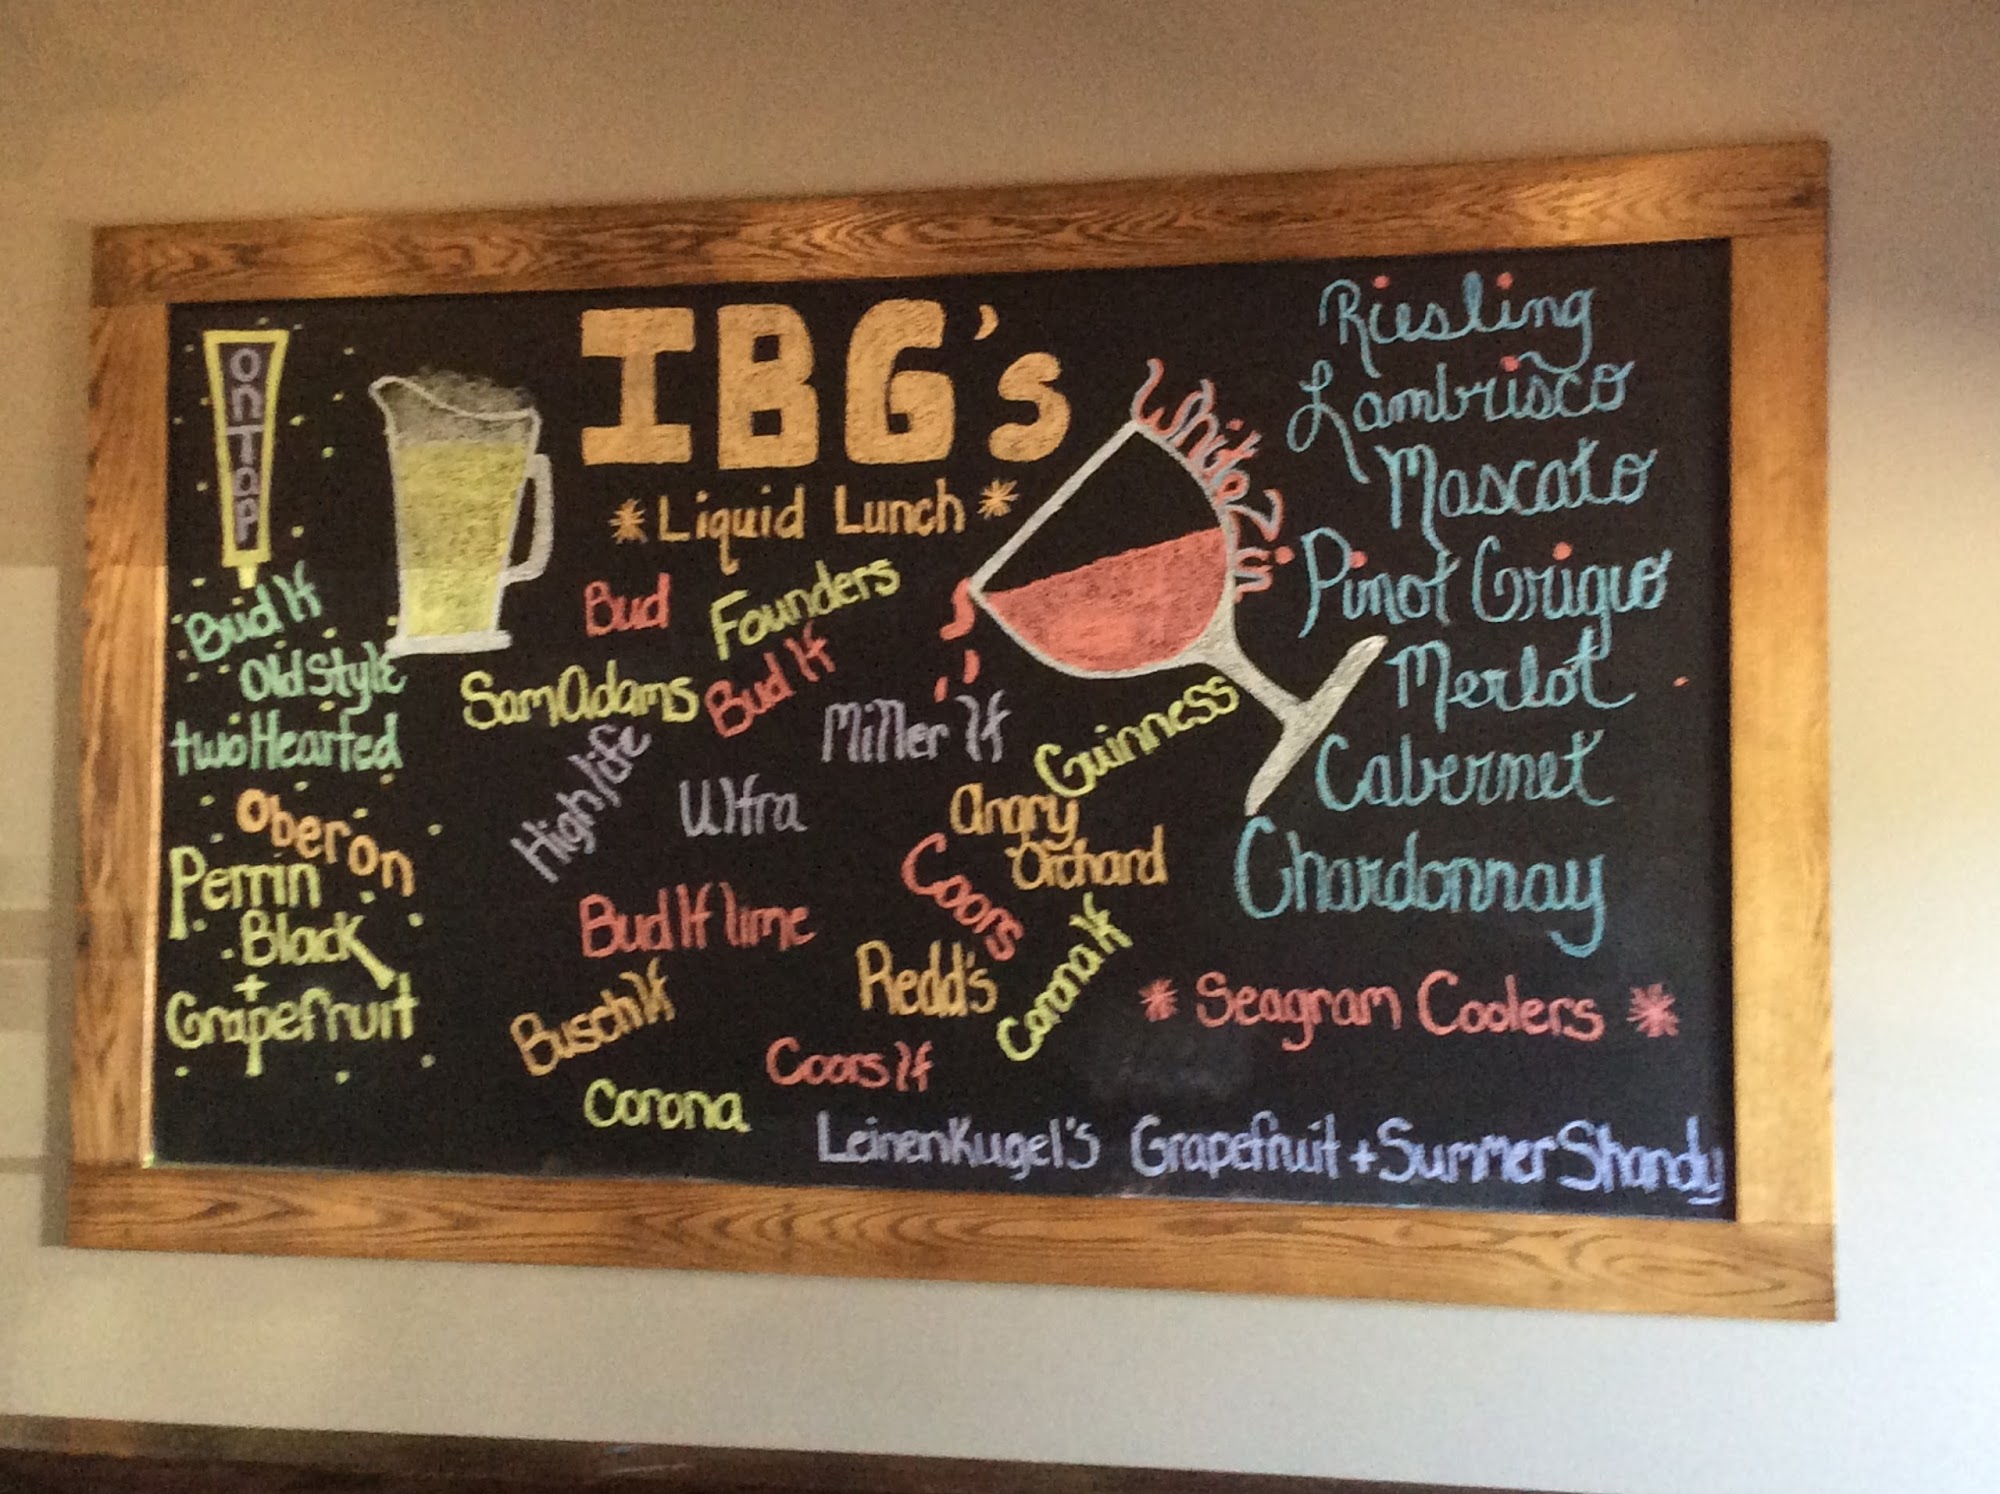 IBG's
*Liquid Lunch*
On Tap
Bud lt
Old Style
two Hearted
Oberon
Perrin
Black
+
Grapefruit
Bud
Founders
Sam Adams
Bud lt
Miller lt
Guinness
High life
Ultra
Angry
Orchard
Coors
Bud lt lime
Redd's
Corona lt
Busch lt
Coors lt
Corona
White Zin
Riesling
Lambrisco
Mascato
Pinot Griguo
Merlot
Cabernet
Chardonnay
* Seagram Coolers *
LeinenKugel's Grapefruit + Summer Shandy